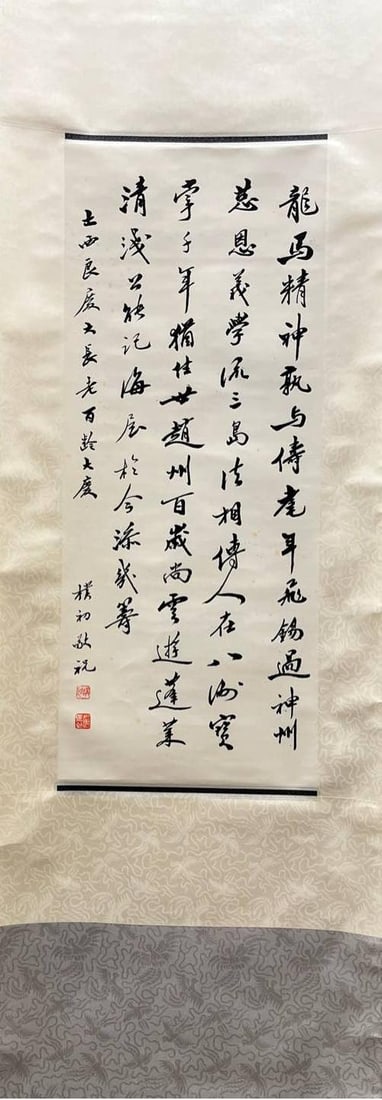 龍馬精神孰与儔耄年飛錫過神州
慈恩義學流三島法相傳人在八洲寶
掌千年猶住世趙州百歲尚雲遊蓬萊
清淺公能記海屋於今添幾籌
大西良慶大長老百齡大慶
樸初敬祝